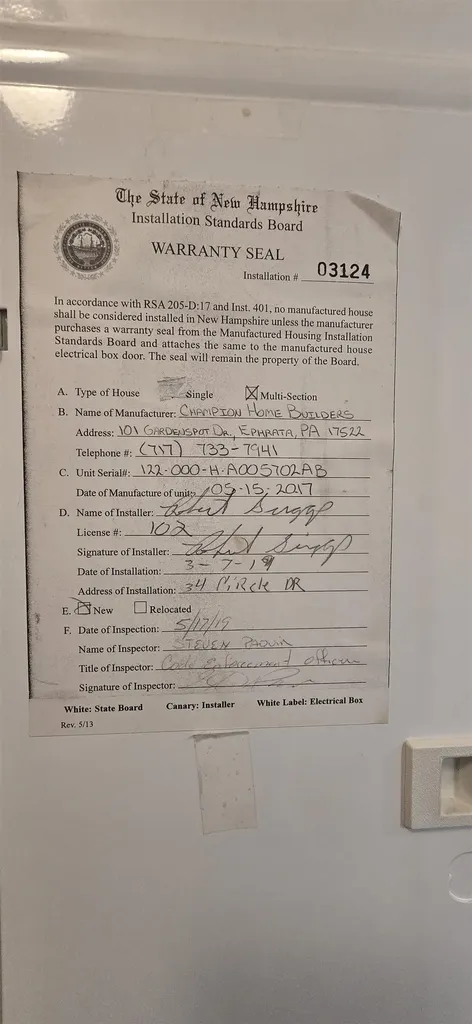 The State of New Hampshire
Installation Standards Board
WARRANTY SEAL
Installation # 03124
In accordance with RSA 205-D:17 and Inst. 401, no manufactured house
shall be considered installed in New Hampshire unless the manufacturer
purchases a warranty seal from the Manufactured Housing Installation
Standards Board and attaches the same to the manufactured house
electrical box door. The seal will remain the property of the Board.
A. Type of House Single Multi-Section
B. Name of Manufacturer: CHAMPION HOME BUILDERS
Address: 101 GARDENSPOT DR., EPHRATA, PA 17522
Telephone #: (717) 733-7941
C. Unit Serial#: 122-000-H-A005702AB
Date of Manufacture of unit: 05-15-2017
D. Name of Installer: Robert
License #: 102
Signature of Installer: Robert
Date of Installation: 3-7-19
Address of Installation: 34 CiRcle DR
E. New Relocated
F. Date of Inspection: 5/17/19
Name of Inspector: STEVEN
Title of Inspector: Code Enforcement officer
Signature of Inspector:
White: State Board Canary: Installer White Label: Electrical Box
Rev. 5/13